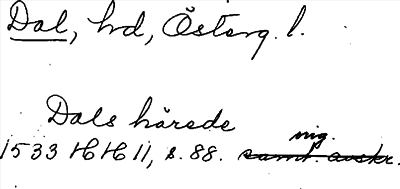 Dal, hd, Österg. l.
Dals härede
orig.
1533 HH 11, s. 88. samt avskr.